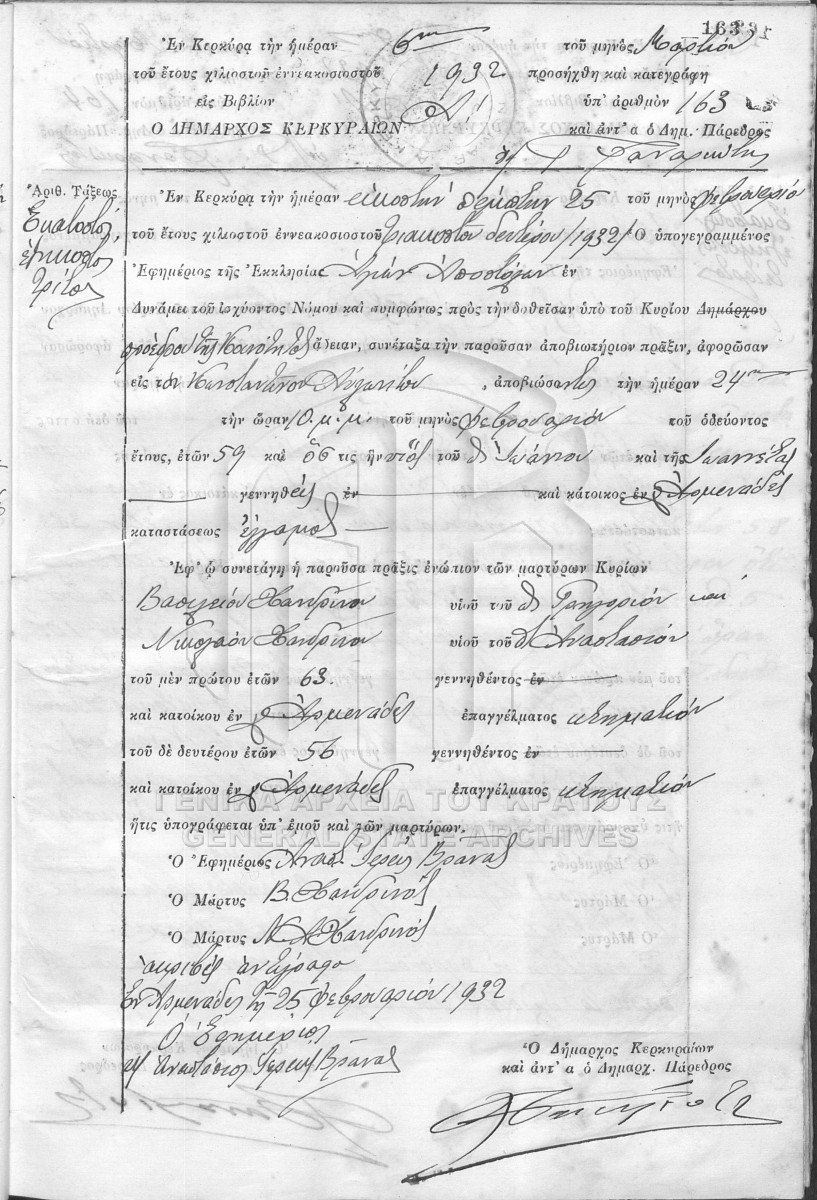 163
Ἐν Κερκύρᾳ τὴν ἡμέραν 6ην τοῦ μηνὸς Μαρτίου
τοῦ ἔτους χιλιοστοῦ ἐννεακοσιοστοῦ 1932 προσήχθη καὶ κατεγράφη
εἰς Βιβλίον Α! ὑπ' ἀριθμὸν 163
Ο ΔΗΜΑΡΧΟΣ ΚΕΡΚΥΡΑΙΩΝ καὶ ἀντ' α ὁ Δημ. Πάρεδρος
Ἀριθ. Τάξεως
Ἑκατοστὸς
ἑξηκοστὸς
τρίτος
Ἐν Κερκύρᾳ τὴν ἡμέραν εἰκοστὴν πέμπτην 25 τοῦ μηνὸς Φεβρουαρίου
τοῦ ἔτους χιλιοστοῦ ἐννεακοσιοστοῦ τριακοστοῦ δευτέρου /1932/ Ὁ ὑπογεγραμμένος
Ἐφημέριος τῆς Ἐκκλησίας Ἁγίων Ἀποστόλων ἐν
Δυνάμει τοῦ ἰσχύοντος Νόμου καὶ συμφώνως πρὸς τὴν δοθεῖσαν ὑπὸ τοῦ Κυρίου Δημάρχου
προέδρου τῆς Κοινότητος ἄδειαν, συνέταξα τὴν παροῦσαν ἀποβιωτήριον πρᾶξιν, ἀφορῶσαν
εἰς τὸν Κωνσταντῖνον Αὐλωνίτου , ἀποβιώσαντος τὴν ἡμέραν 24ην
τὴν ὥραν 10 μ.μ. τοῦ μηνὸς Φεβρουαρίου τοῦ ὁδεύοντος
ἔτους, ἐτῶν 59 καὶ ὅστις ἦν υἱὸς τοῦ Ἰωάννου καὶ τῆς Ἰωαννέτας
γεννηθεὶς ἐν καὶ κάτοικος ἐν Ἀρμενάδες
καταστάσεως ἔγγαμος
Ἐφ' ᾧ συνετάγη ἡ παροῦσα πρᾶξις ἐνώπιον τῶν μαρτύρων Κυρίων
Βασιλείου Χανδρινοῦ υἱοῦ τοῦ Γρηγορίου καὶ
Νικολάου Χανδρινοῦ υἱοῦ τοῦ Ἀναστασίου
τοῦ μὲν πρώτου ἐτῶν 63 γεννηθέντος ἐν
καὶ κατοίκου ἐν Ἀρμενάδες ἐπαγγέλματος κτηματίου
τοῦ δὲ δευτέρου ἐτῶν 56 γεννηθέντος ἐν
καὶ κατοίκου ἐν Ἀρμενάδες ἐπαγγέλματος κτηματίου
ΓΕΝΙΚΑ ΑΡΧΕΙΑ ΤΟΥ ΚΡΑΤΟΥΣ
ἥτις ὑπογράφεται ὑπ' ἐμοῦ καὶ τῶν μαρτύρων.
GENERAL STATE ARCHIVES
Ὁ Ἐφημέριος Ἀναστ. Ἱερεὺς Βρανᾶς
Ὁ Μάρτυς Β. Χανδρινός
Ὁ Μάρτυς Ν. Α. Χανδρινός
ἀκριβὲς ἀντίγραφο
Ἐν Ἀρμενάδες τῇ 25 Φεβρουαρίου 1932
Ὁ Ἐφημέριος
Ἀναστάσιος Ἱερεὺς Βρανᾶς
Ὁ Δήμαρχος Κερκυραίων
καὶ ἀντ' α ὁ Δημαρχ. Πάρεδρος